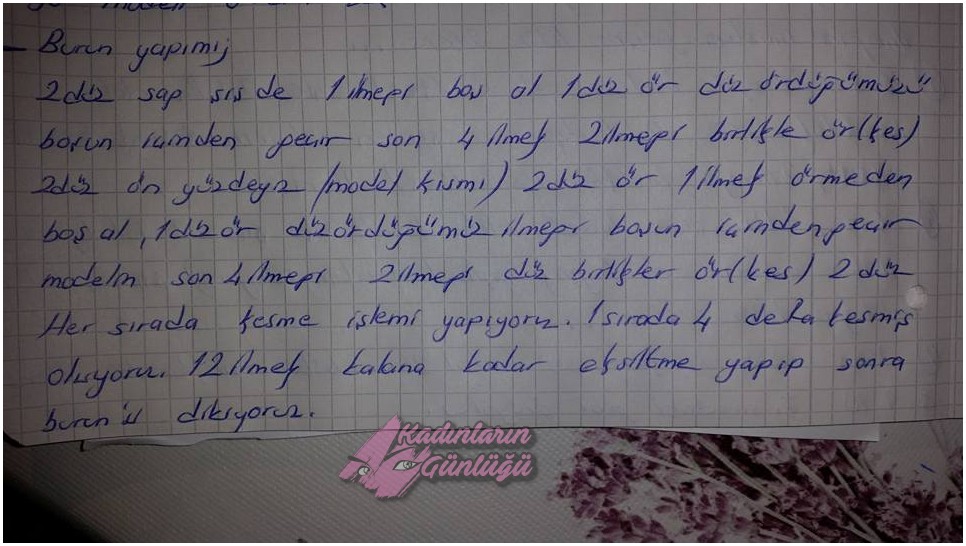 - Burun yapımı;
2düz sap şişde 1 ilmeği boş al 1düz ör düz ördüğümüzü
boşun içinden geçir son 4 ilmek 2ilmeği birlikte ör(kes)
2düz ön yüzdeyiz (model kısmı) 2düz ör 1ilmek örmeden
boş al, 1düz ör düz ördüğümüz ilmeği boşun içinden geçir
modelin son 4 ilmeği 2ilmeği düz birlikte ör(kes) 2 düz
Her sırada kesme işlemi yapıyoruz. 1 sırada 4 defa kesmiş
oluyoruz. 12 ilmek kalana kadar eksiltme yapıp sonra
burun'u dikiyoruz.
Kadınların
Günlüğü